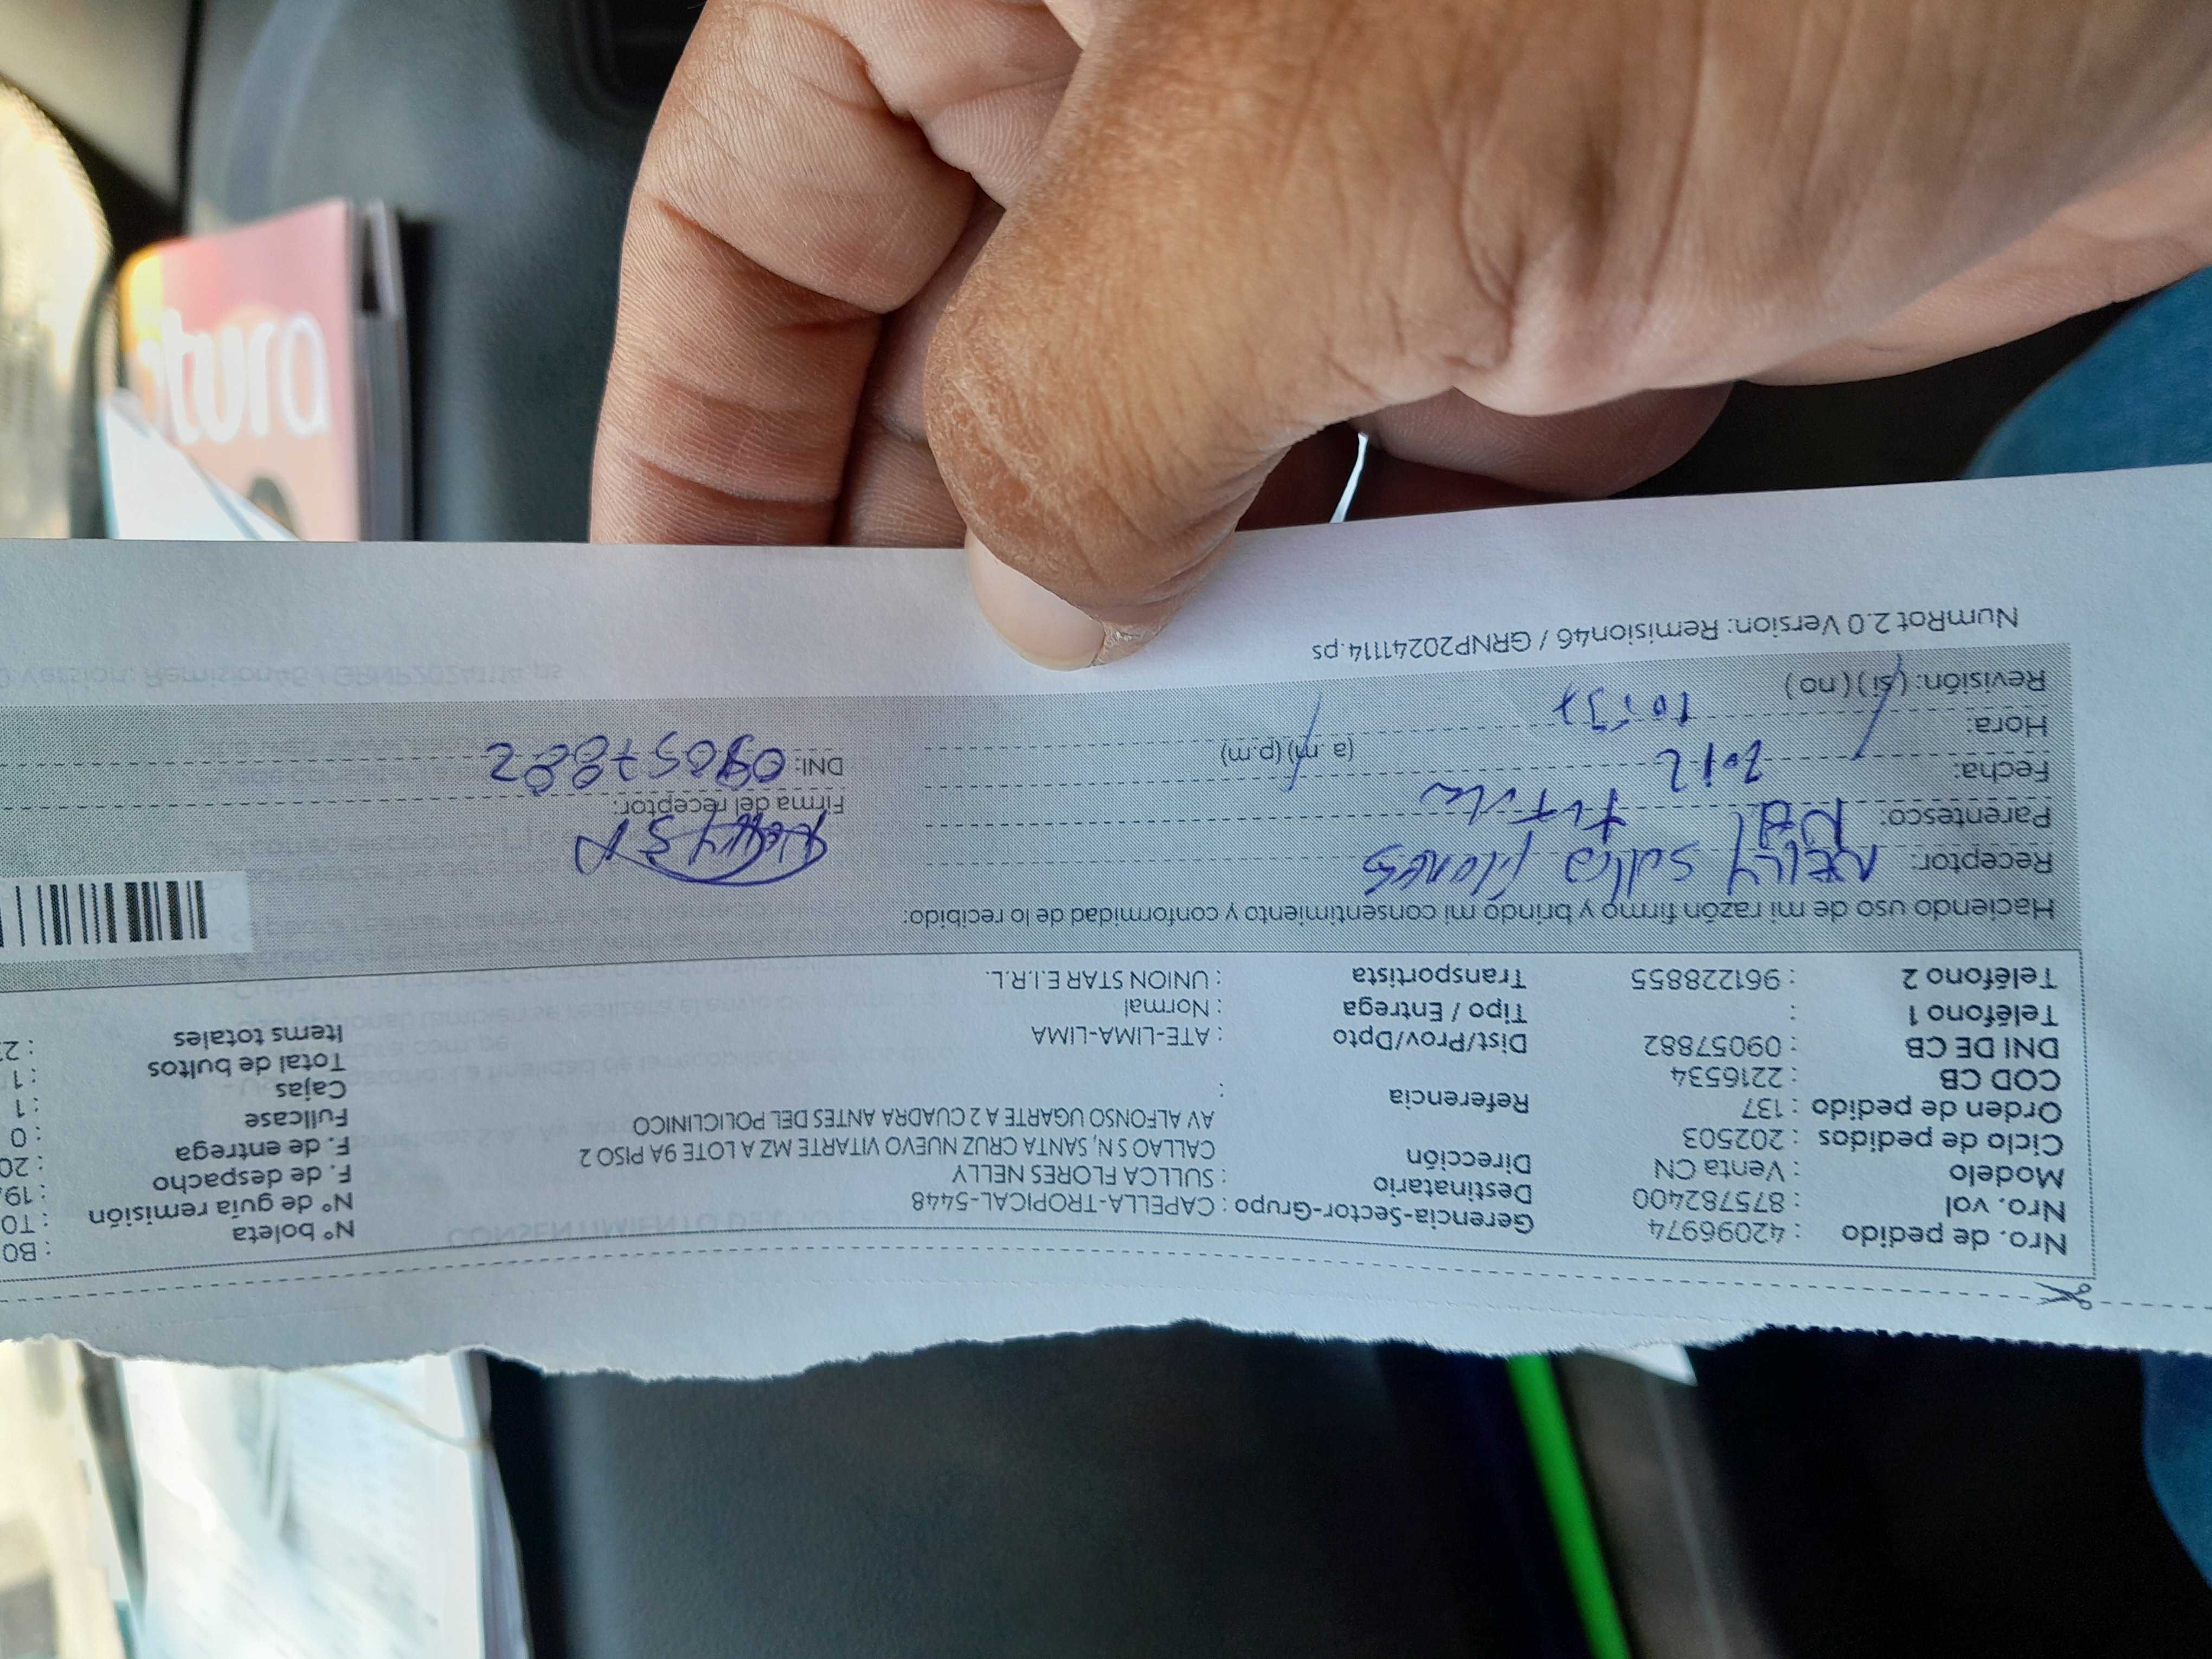 Nro. de pedido : 42096974
Nro. vol : 875782400
Modelo : Venta CN
Ciclo de pedidos : 202503
Orden de pedido : 137
COD CB : 2216534
DNI DE CB : 09057882
Teléfono 1 :
Teléfono 2 : 961228855
Gerencia-Sector-Grupo : CAPELLA-TROPICAL-5448
Destinatario : SULLCA FLORES NELLY
Dirección CALLAO S N, SANTA CRUZ NUEVO VITARTE MZ A LOTE 9A PISO 2
AV ALFONSO UGARTE A 2 CUADRA ANTES DEL POLICLINICO
Referencia :
Dist/Prov/Dpto : ATE-LIMA-LIMA
Tipo / Entrega : Normal
Transportista : UNION STAR E.I.R.L.
N° boleta : B0
N° de guía remisión : T0
F. de despacho : 19
F. de entrega : 20
Fullcase : 0
Cajas : 1
Total de bultos : 1
Items totales : 2
Haciendo uso de mi razón firmo y brindo mi consentimiento y conformidad de lo recibido:
Receptor: NELLY flores
Parentesco: titula
Fecha:
Hora: (a.m) (p.m)
Revisión: (si) (no)
Firma del receptor:
DNI: 09057882
NumRot 2.0 Version: Remision46 / GRNP20241114.ps
tura